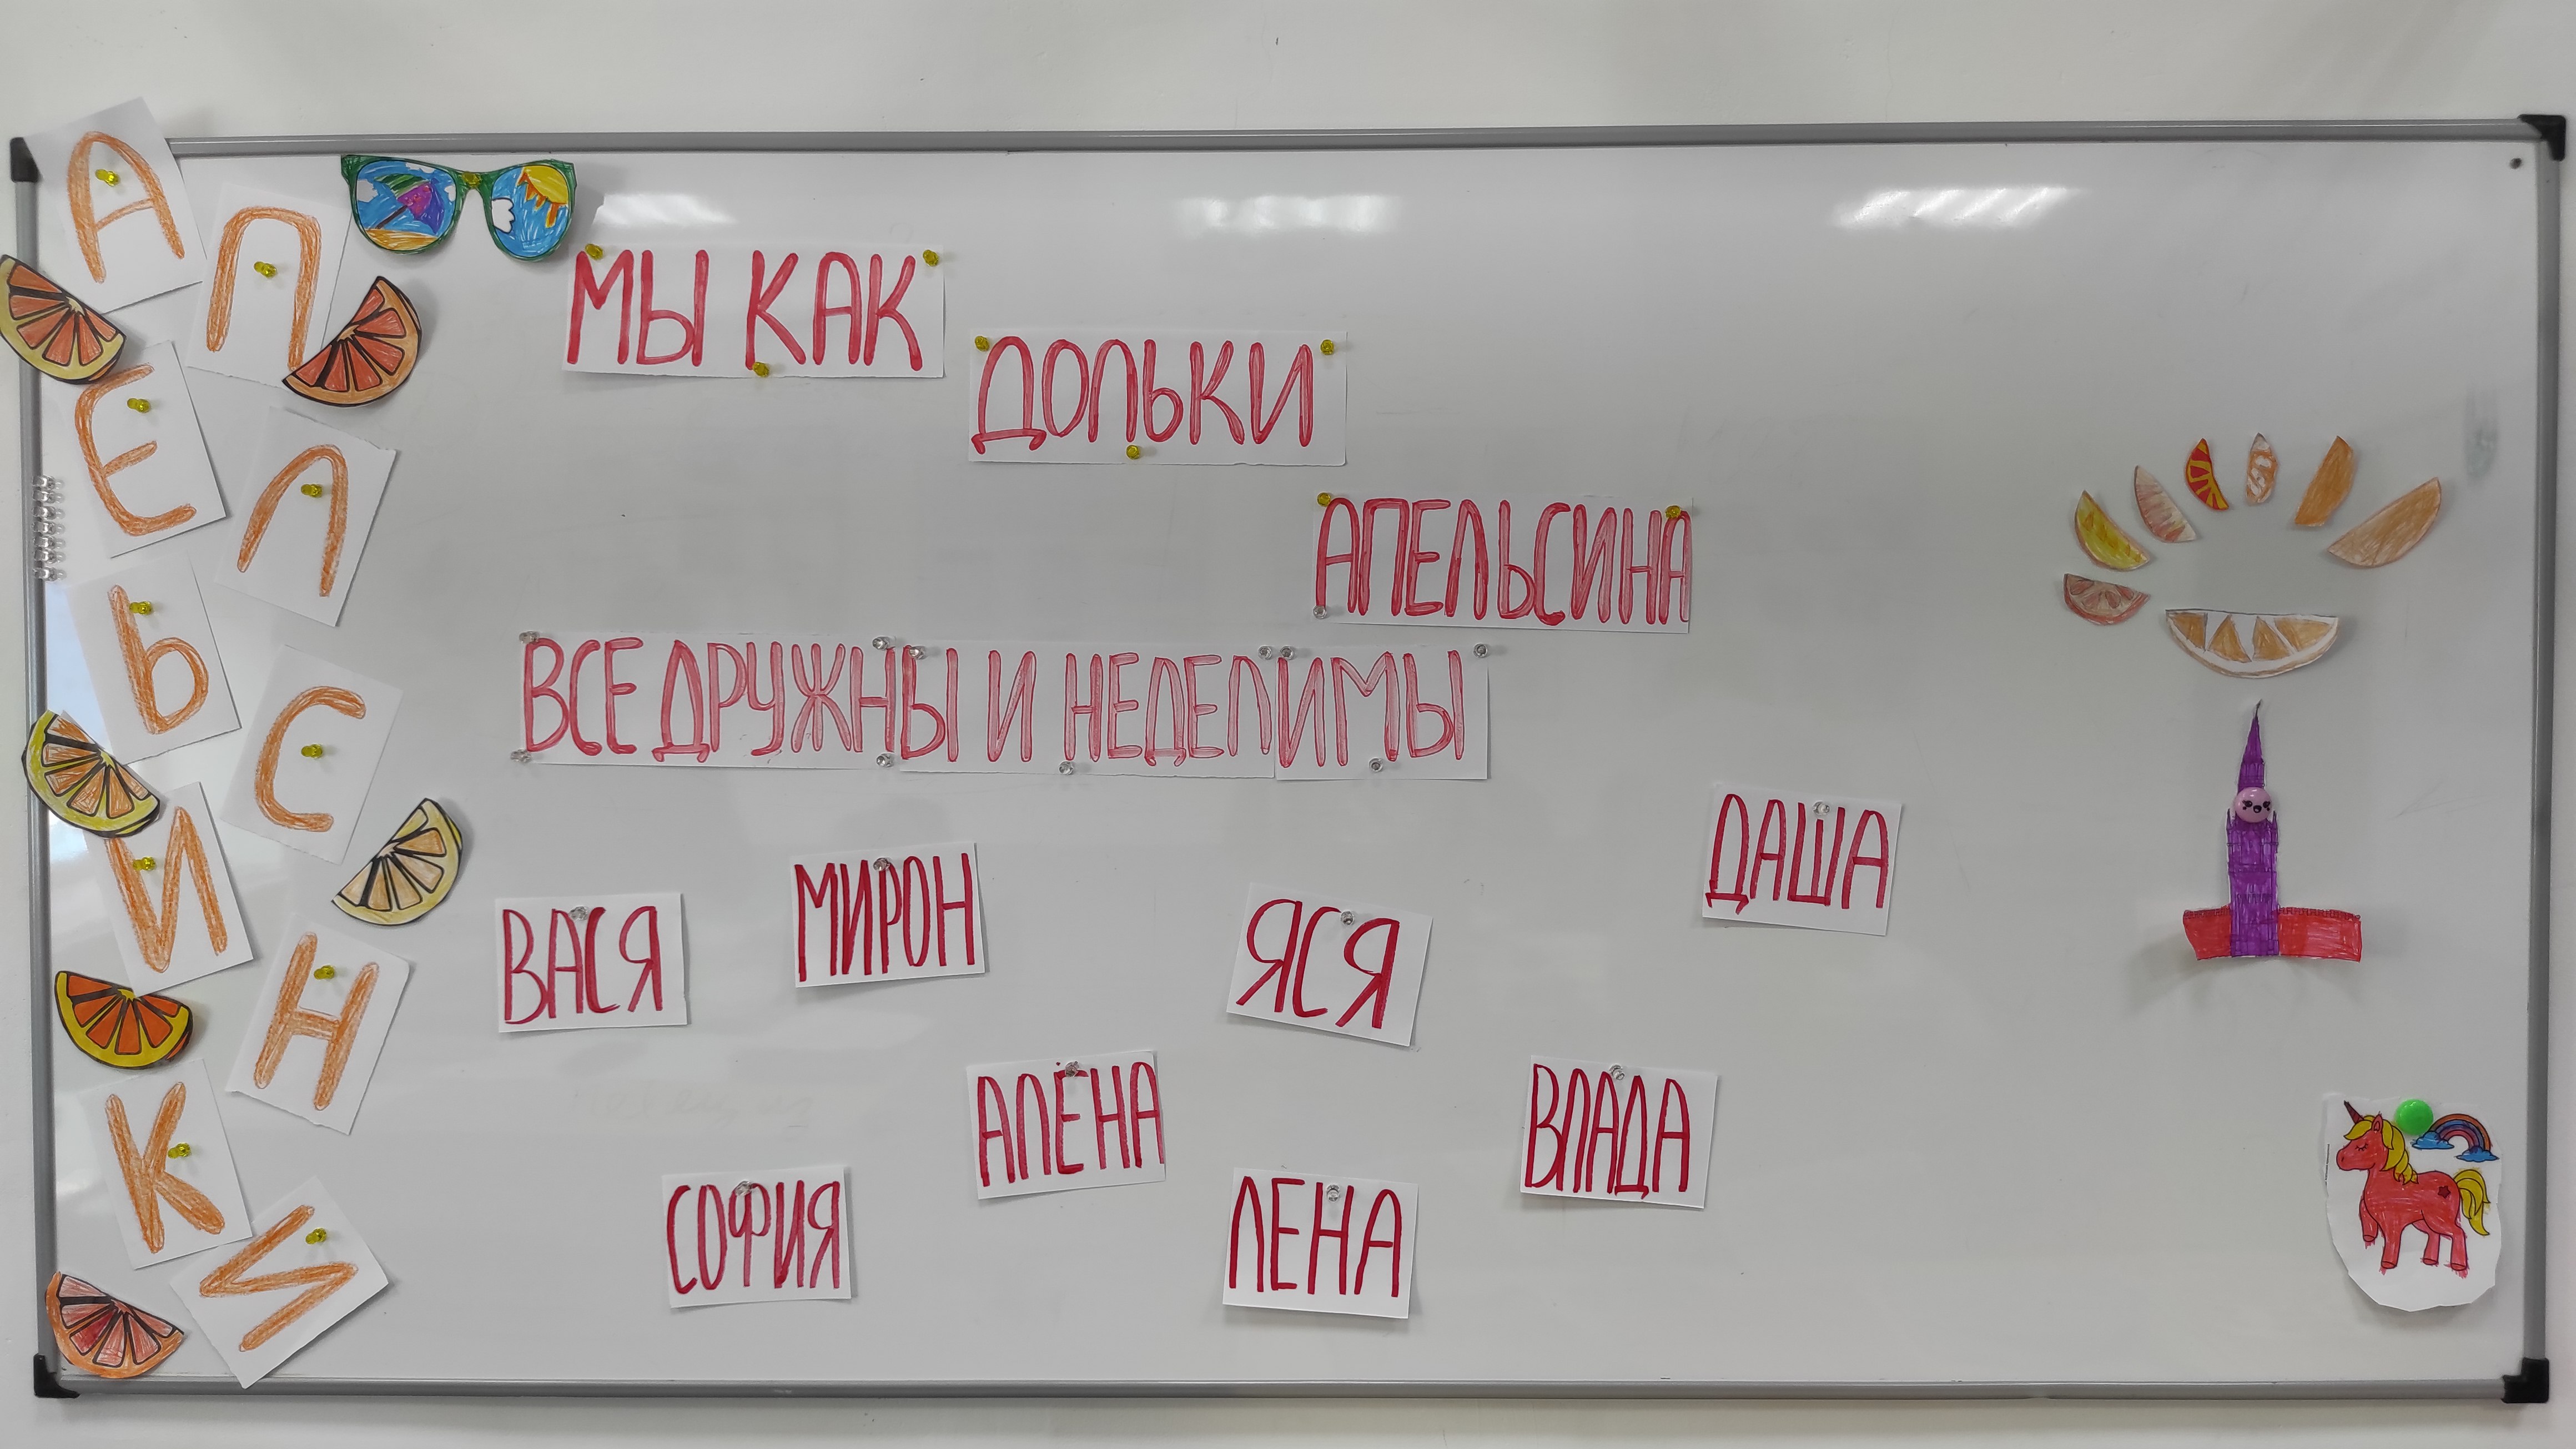 АПЕЛЬСИНКИ
МЫ КАК
ДОЛЬКИ
АПЕЛЬСИНА
ВСЕ ДРУЖНЫ И НЕДЕЛИМЫ
ДАША
МИРОН
ВАСЯ
ЯСЯ
АЛЁНА
ВЛАДА
СОФИЯ
ЛЕНА